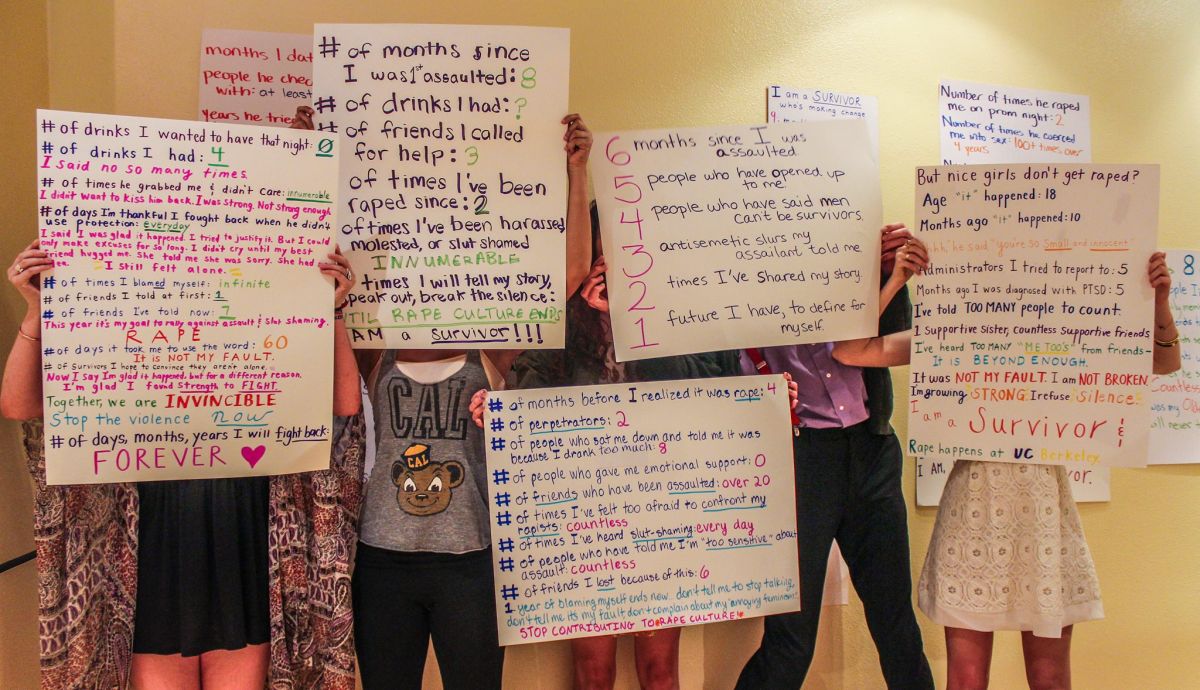 months I dat
people he chec
with: at least
years he trie
# of drinks I wanted to have that night: 0
# of drinks I had: 4
I said no so many times.
# of times he grabbed me & didn't care: innumerable
I didn't want to kiss him back. I was strong. Not strong enough
# of days I'm thankful I fought back when he didn't
use protection: everyday
I said I was glad it happened. I tried to justify it. But I could
only make excuses for so long. I didn't cry until my best
friend hugged me. She told me she was sorry. She had
idea. I still felt alone.
# of times I blamed myself: infinite
# of friends I told at first: 1
# of friends I've told now:
This year it's my goal to rally against assault & slut shaming.
RAPE
# of days it took me to use the word: 60
It is NOT MY FAULT.
# of survivors I hope to convince they aren't alone:
Now I say I'm glad it happened, but for a different reason.
I'm glad I found strength to FIGHT.
Together, we are INVINCIBLE
Stop the violence now
# of days, months, years I will fight back:
FOREVER ♥
# of months since
I was 1st assaulted: 8
# of drinks I had: ?
# of friends I called
for help: 3
of times I've been
raped since: 2
of times I've been harassed
molested, or slut shamed
INNUMERABLE
times I will tell my story,
speak out, break the silence:
TIL RAPE CULTURE ENDS
AM a survivor!!!
CAL
CAL
6 months since I was
assaulted
5 people who have opened up
to me
4 people who have said men
can't be survivors.
3 antisemetic slurs my
assailant told me
2 times I've shared my story.
1 future I have, to define for
myself.
# of months before I realized it was rape: 4
# of perpetrators: 2
# of people who sat me down and told me it was
because I drank too much: 8
# of people who gave me emotional support: 0
# of friends who have been assaulted: over 20
# of times I've felt too afraid to confront my
rapists: countless
# of times I've heard slut-shaming: every day
# of people who have told me I'm "too sensitive" about
assault: countless
# of friends I lost because of this: 6
1 year of blaming myself ends now... don't tell me to stop talking,
don't tell me it's my fault don't complain about my "annoying feminism"
STOP CONTRIBUTING TO RAPE CULTURE!
I am a SURVIVOR
who's making change
Number of times he raped
me on prom night: 2
Number of times he coerced
me into sex: 100+ times over
4 years
But nice girls don't get raped?
Age "it" happened: 18
Months ago "it" happened: 10
he said "you're so small and innocent."
Administrators I tried to report to: 5
Months ago I was diagnosed with PTSD: 5
I've told TOO MANY people to count.
1 Supportive Sister, countless supportive friends
I've heard TOO MANY "ME TOO'S" from friends-
It is BEYOND ENOUGH.
It was NOT MY FAULT. I am NOT BROKEN.
I'm growing STRONG I refuse Silence. &
I am a Survivor
Rape happens at UC Berkeley.
I AM,
or.
8